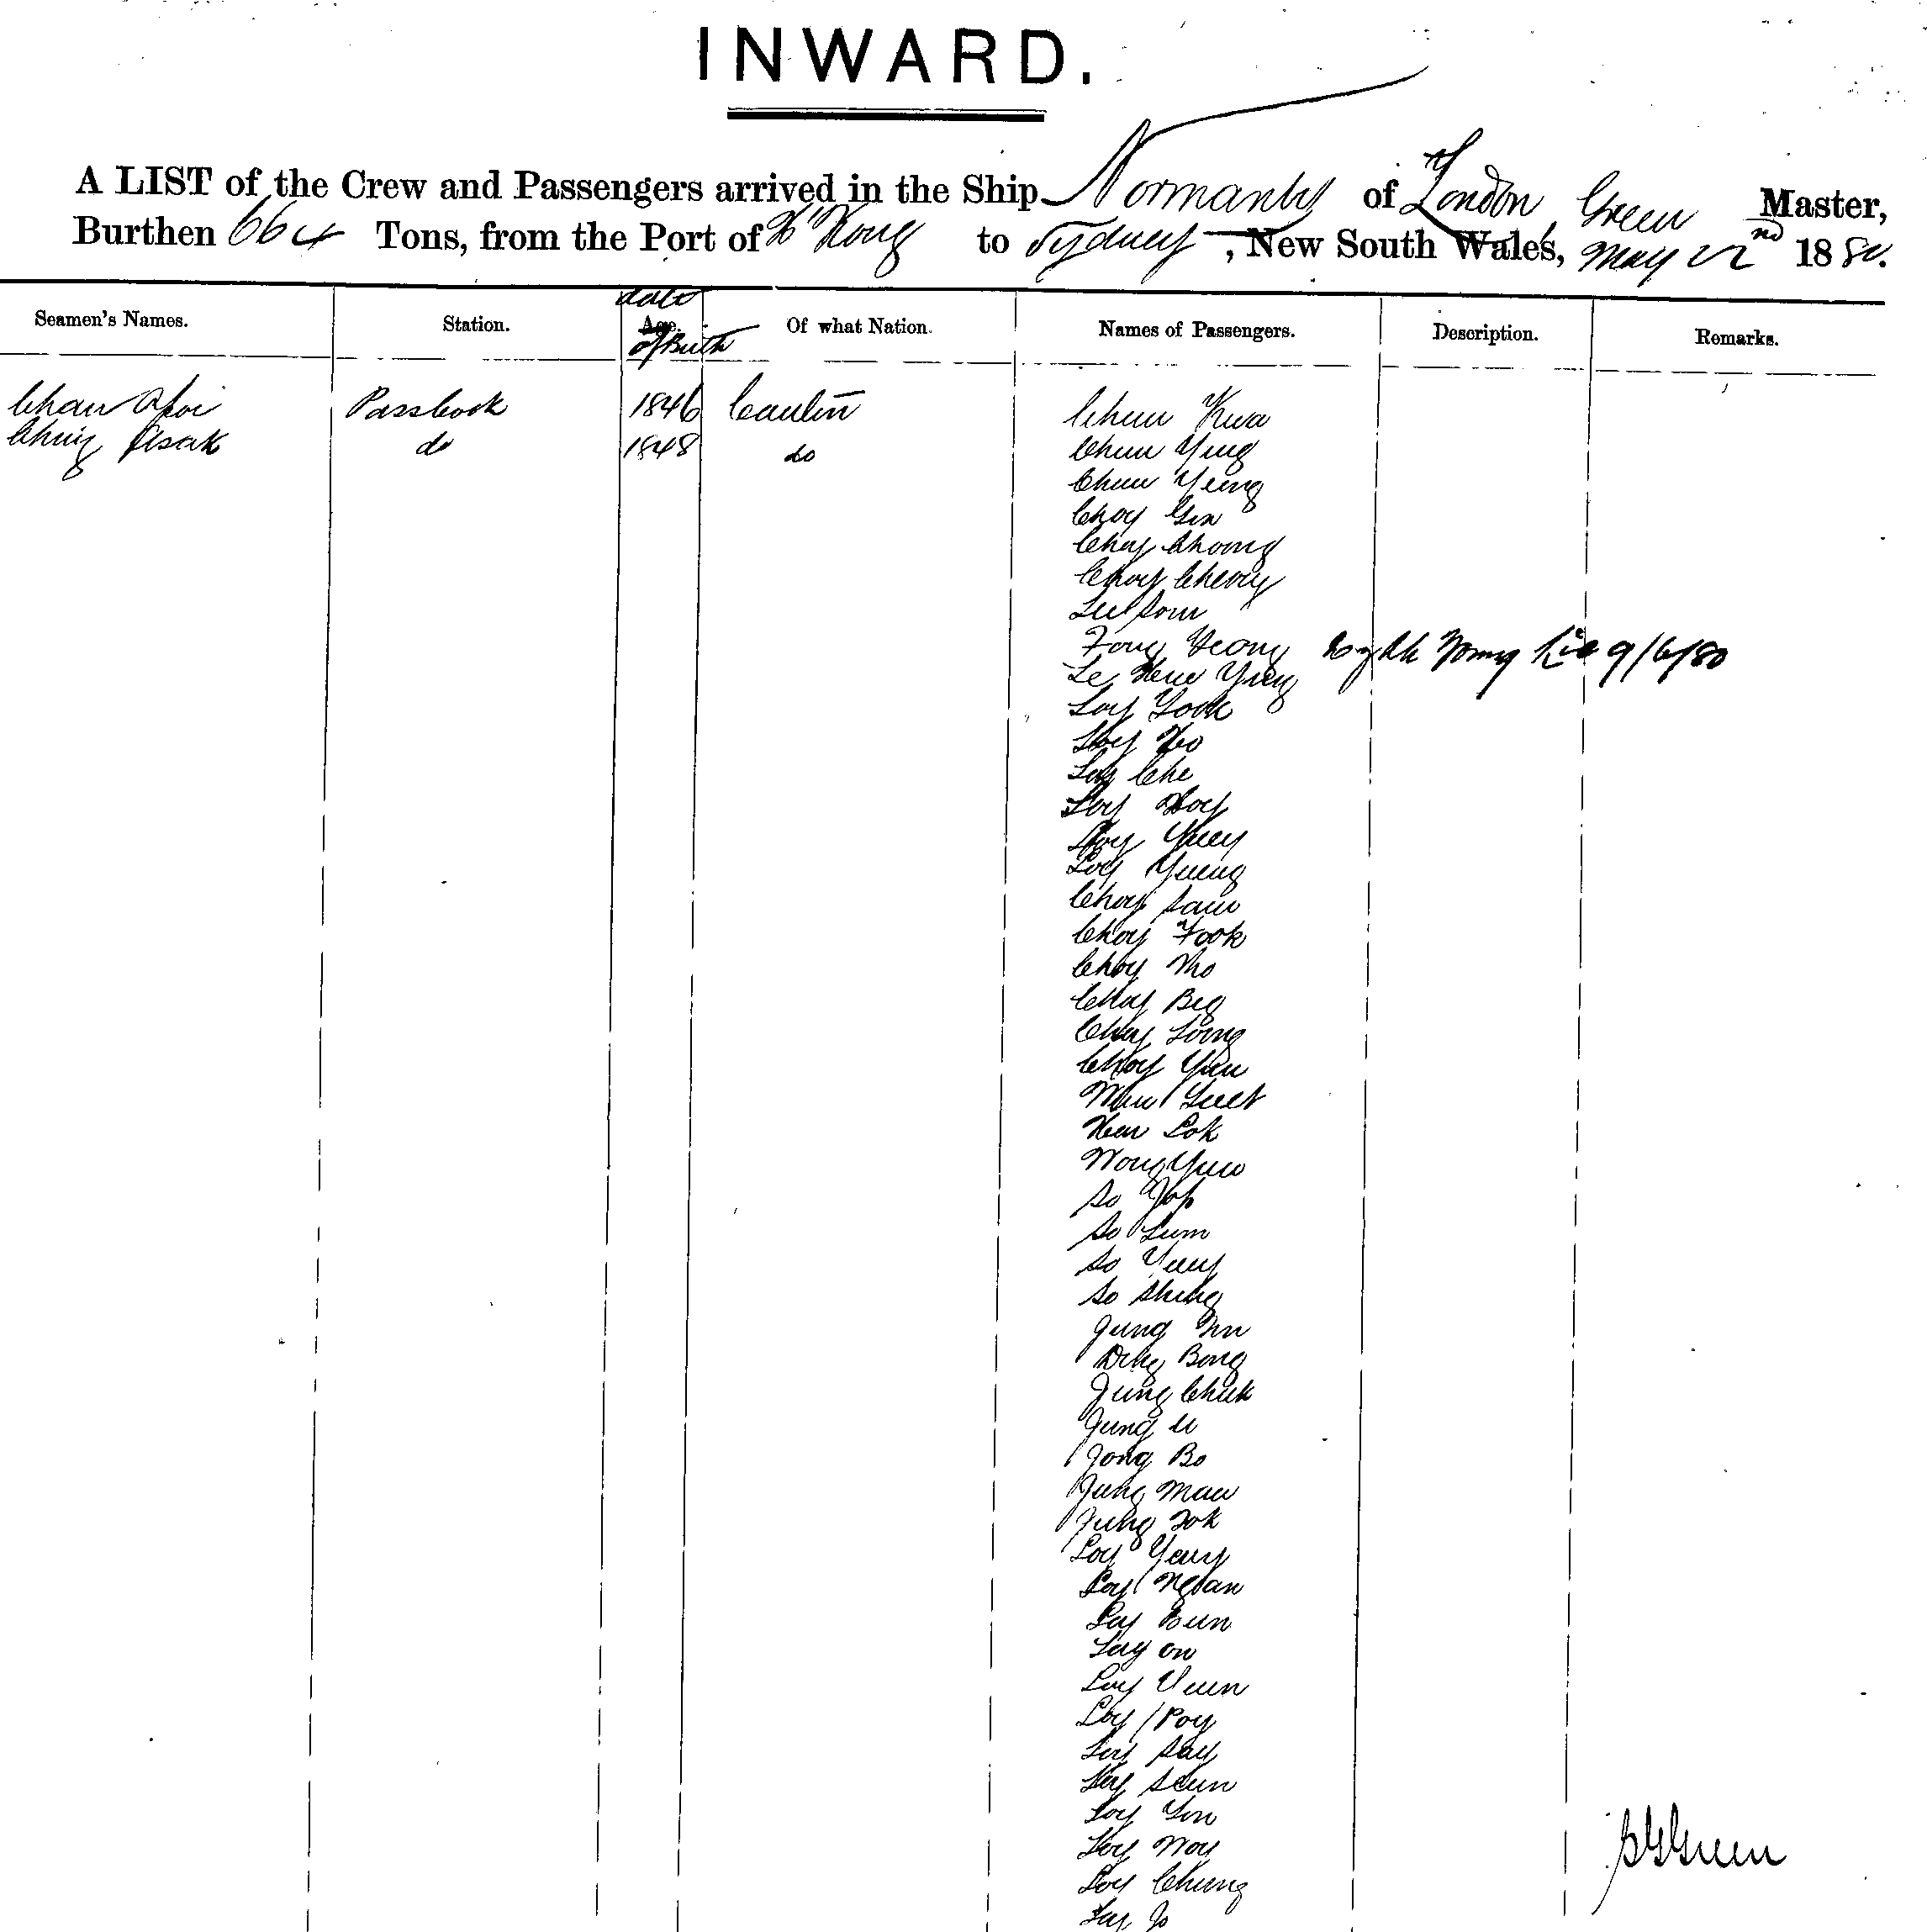 INWARD.
A LIST of the Crew and Passengers arrived in the Ship Normanby of London, Green Master,
Burthen 664 Tons, from the Port of H'Kong to Sydney, New South Wales, May 22nd 1880.
Seamen's Names. Station. date Age. of Birth Of what Nation. Names of Passengers. Description. Remarks.
Chan Ahoi Passbook 1846 Canton Chun Kwa
Ching Asak do 1848 do Chun Ying
Chun Yeung
Choy Gin
Choy Choong
Choy Cheong
Lee Som
Fong Yeong 9/6/80
Le Hew Ying
Loy Gook
Loy Ho
Loy Che
Loy Hoy
Loy Yuey
Loy Yueng
Choy Sam
Choy Fook
Choy Mo
Choy Beg
Choy Loong
Choy Yuu
Lok
Wong Yuw
So Yop
So Lum
So Yuey
So Shing
Jung
Ding Bong
Jung Chuk
Jung U
Jong Bo
Jung Mau
Jung Tok
Loy Yeuy
Loy Ngan
Loy Eun
Loy on
Loy Yuun
Loy Poy
Loy Say
Loy Seun
Loy Yon
Loy Moy
Loy Chung
Loy Jo
Green